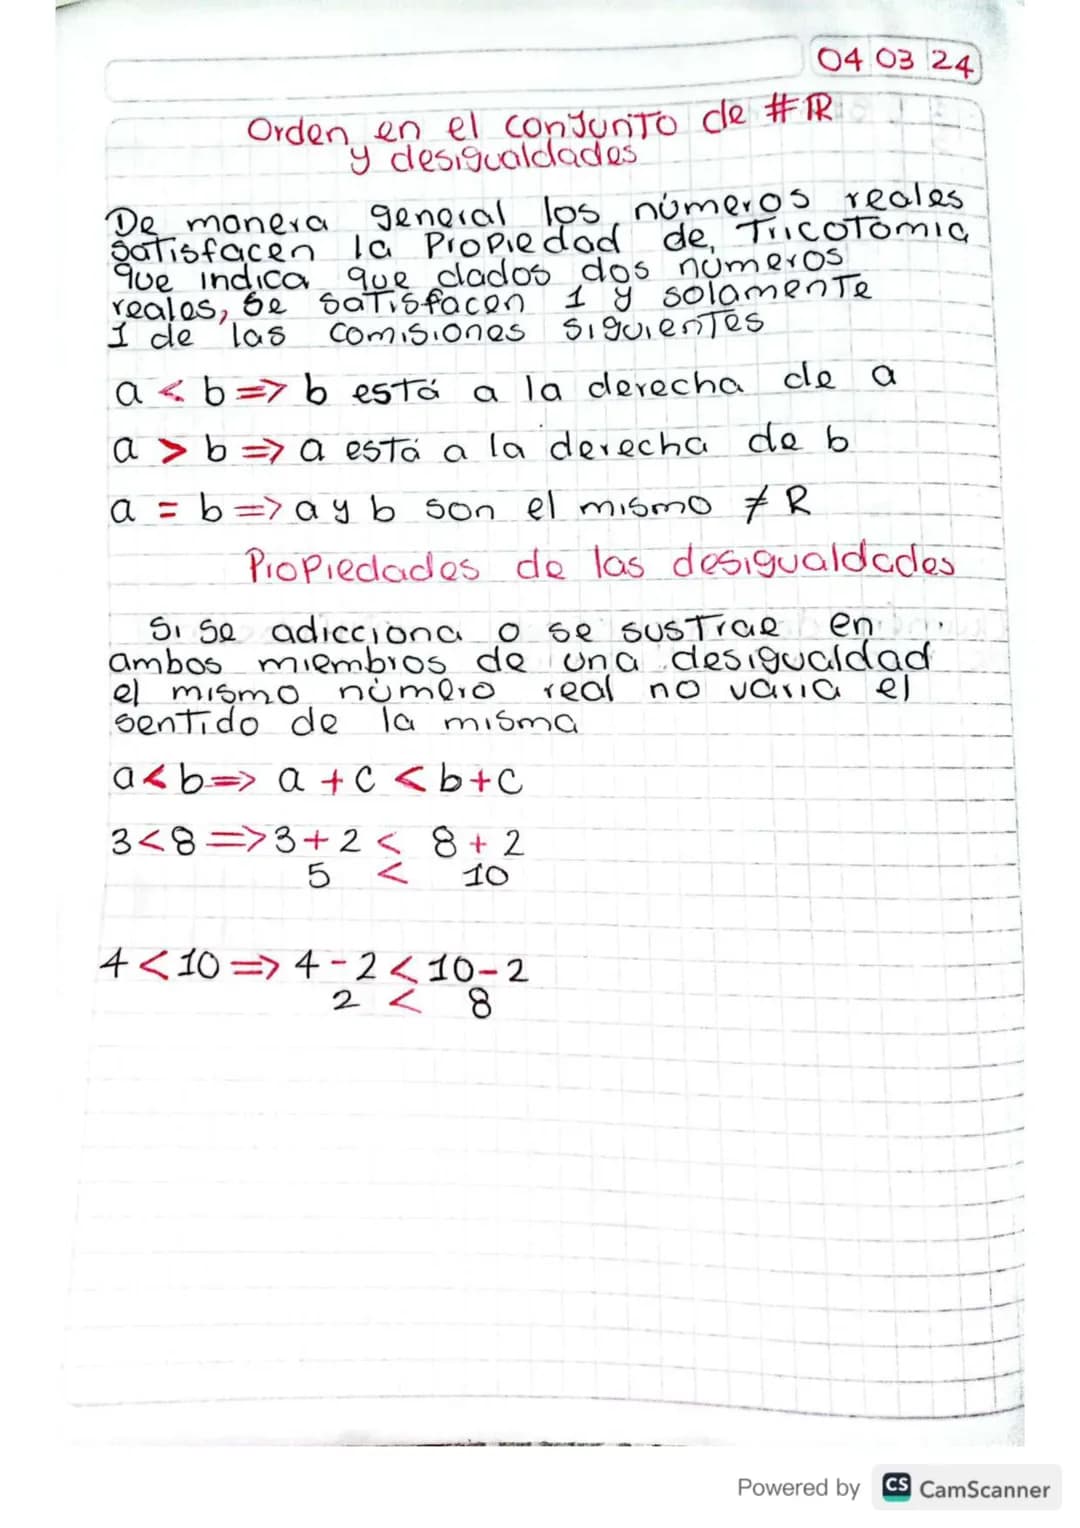 04 03 24
Orden en el conjunto de #ℝ
y desigualdades
De manera general los números reales
satisfacen la Propiedad de, Tricotomia
que indica que dados dos números
reales, se satisfacen 1 y solamente
1 de las comisiones siguientes
a < b => b está a la derecha de a
a > b => a está a la derecha de b
a = b => a y b son el mismo ≠ R
Propiedades de las desigualdades
Si se adicciona o se sustrae en
ambos miembros de una desigualdad
el mismo número real no varia el
sentido de la misma
a < b => a + c < b + c
3 < 8 => 3 + 2 < 8 + 2
5 < 10
4 < 10 => 4 - 2 < 10 - 2
2 < 8
Powered by CS CamScanner